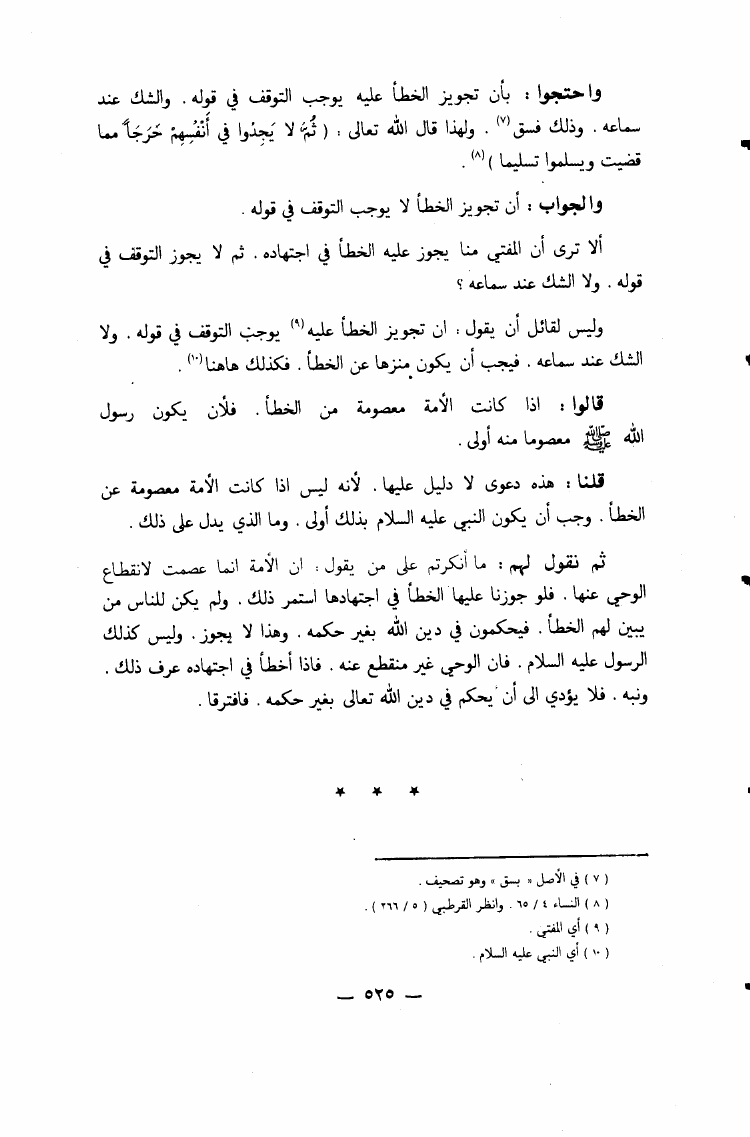 واحتجوا : بأن تجويز الخطأ عليه يوجب التوقف في قوله . والشك عند
سماعه . وذلك فسق(٧) . ولهذا قال الله تعالى : ( ثُمَّ لا يَجِدُوا في أَنْفُسِهِمْ حَرَجَاً مما
قضيت ويسلموا تسليما )(٨) .
والجواب : أن تجويز الخطأ لا يوجب التوقف في قوله .
ألا ترى أن المفتي منا يجوز عليه الخطأ في اجتهاده . ثم لا يجوز التوقف في
قوله . ولا الشك عند سماعه ؟
وليس لقائل أن يقول : ان تجويز الخطأ عليه(٩) يوجب التوقف في قوله . ولا
الشك عند سماعه . فيجب أن يكون منزها عن الخطأ . فكذلك هاهنا(١٠) .
قالوا : اذا كانت الأمة معصومة من الخطأ . فلأن يكون رسول
الله ﷺ معصوما منه أولى .
قلنا : هذه دعوى لا دليل عليها . لأنه ليس اذا كانت الأمة معصومة عن
الخطأ . وجب أن يكون النبي عليه السلام بذلك أولى . وما الذي يدل على ذلك .
ثم نقول لهم : ما أنكرتم على من يقول : ان الأمة انما عصمت لانقطاع
الوحي عنها . فلو جوزنا عليها الخطأ في اجتهادها استمر ذلك . ولم يكن للناس من
يبين لهم الخطأ . فيحكمون في دين الله بغير حكمه . وهذا لا يجوز . وليس كذلك
الرسول عليه السلام . فان الوحي غير منقطع عنه . فاذا أخطأ في اجتهاده عرف ذلك .
ونبه . فلا يؤدي الى أن يحكم في دين الله تعالى بغير حكمه . فافترقا .
* * *
( ٧ ) في الأصل « بسق » وهو تصحيف .
( ٨ ) النساء ٤ / ٦٥ . وانظر القرطبي ( ٥ / ٢٦٦ ) .
( ٩ ) أي المفتي .
( ١٠ ) أي النبي عليه السلام .
— ٥٢٥ —